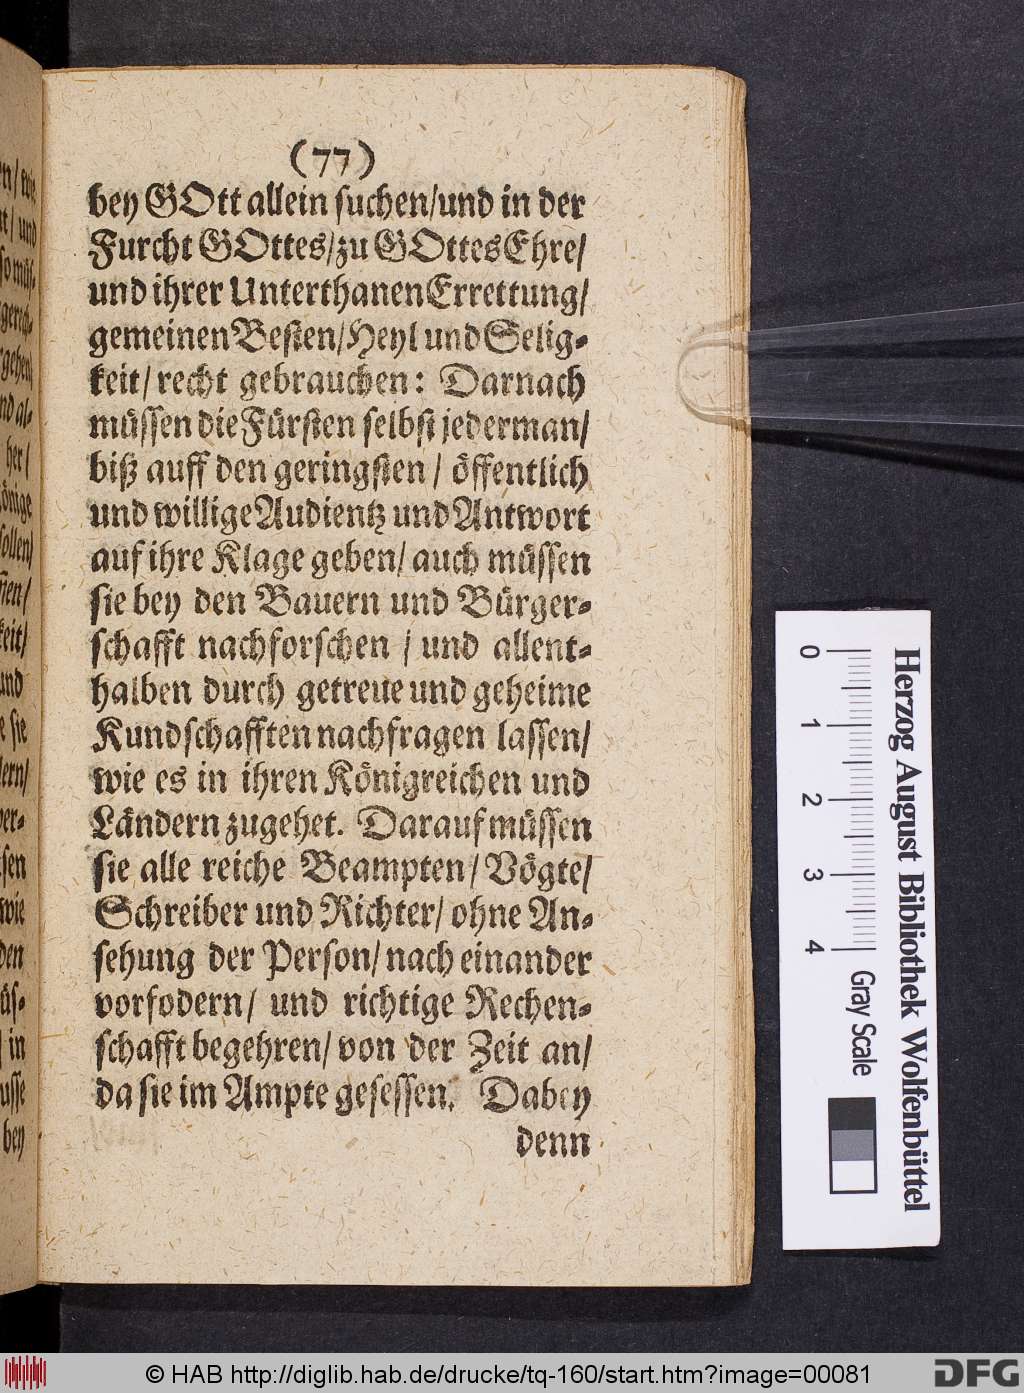 (77)
bey GOtt allein suchen/und in der
Furcht GOttes/zu GOttes Ehre/
und ihrer Unterthanen Errettung/
gemeinen Besten/Heyl und Selig-
keit/ recht gebrauchen: Darnach
müssen die Fürsten selbst jederman/
biß auff den geringsten / öffentlich
und willige Audientz und Antwort
auf ihre Klage geben/ auch müssen
sie bey den Bauern und Bürger-
schafft nachforschen / und allent-
halben durch getreue und geheime
Kundschafften nachfragen lassen/
wie es in ihren Königreichen und
Ländern zugehet. Darauf müssen
sie alle reiche Beampten/ Vögte/
Schreiber und Richter/ ohne An-
sehung der Person/ nach einander
vorfodern/ und richtige Rechen-
schafft begehren/ von der Zeit an/
da sie im Ampte gesessen. Dabey
denn
Herzog August Bibliothek Wolfenbüttel
0 1 2 3 4 Gray Scale
© HAB http://diglib.hab.de/drucke/tq-160/start.htm?image=00081
DFG